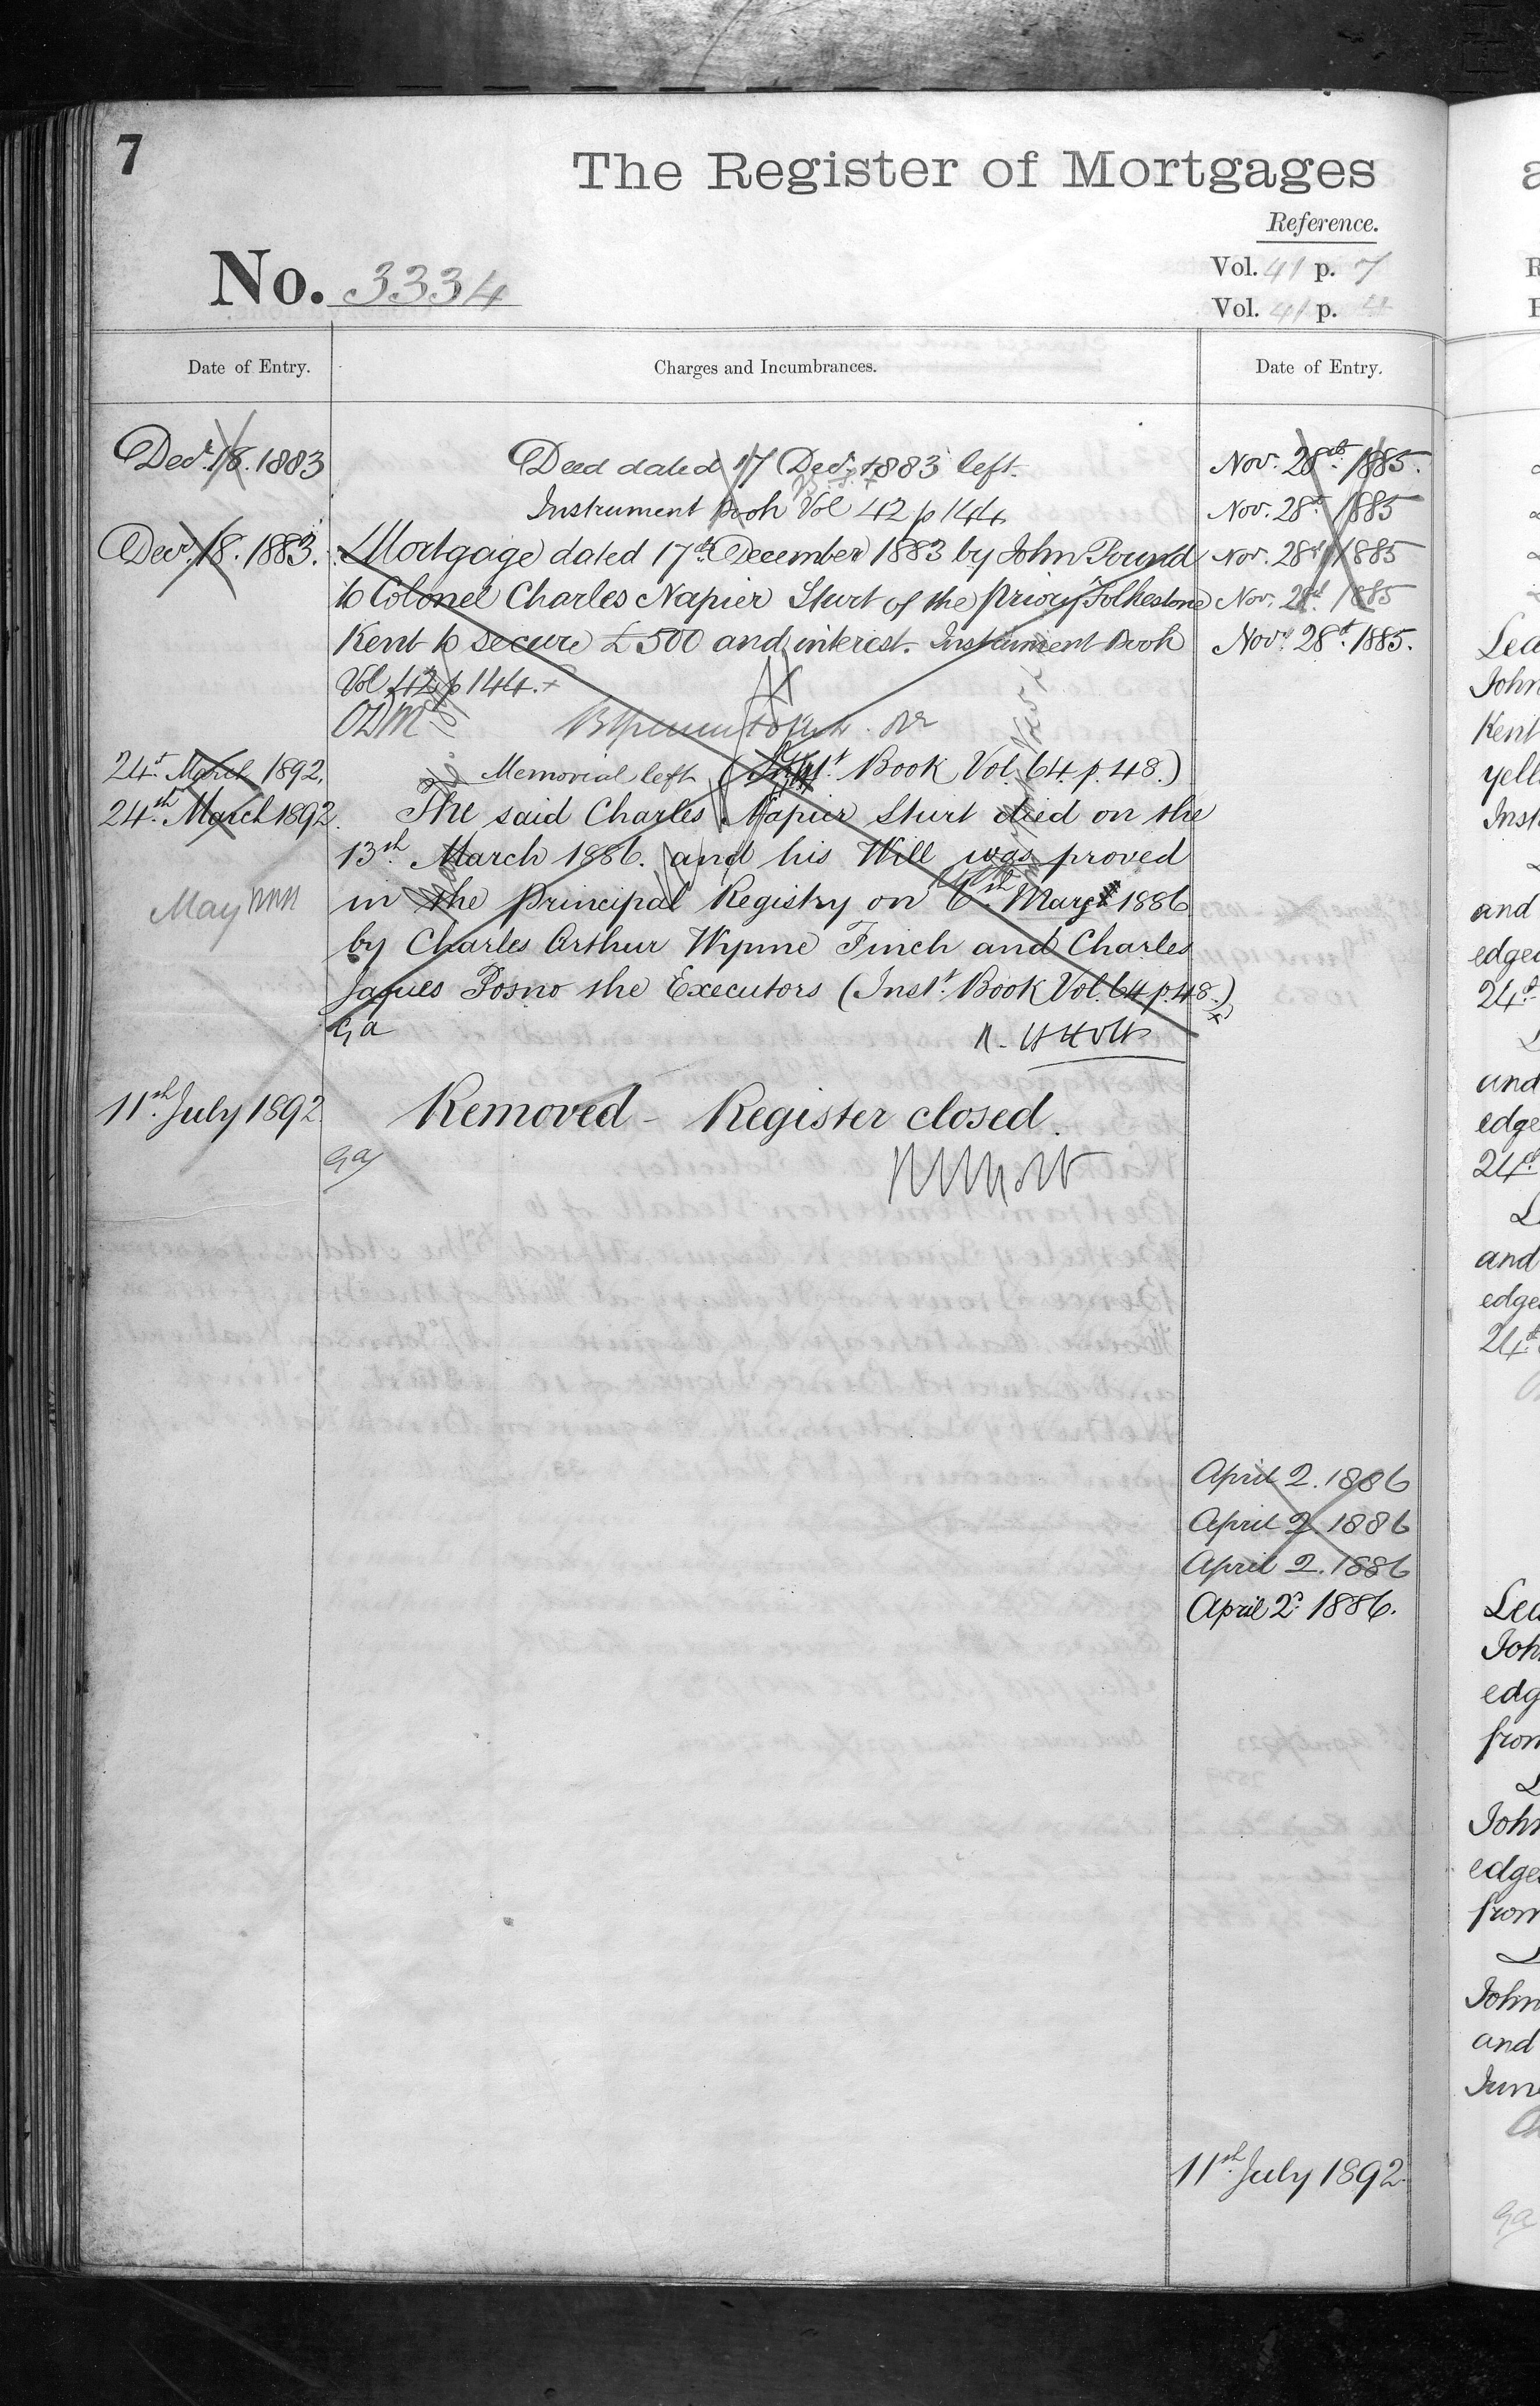 7
The Register of Mortgages
Reference.
No. 3334
Vol. 41 p. 7
Vol. 41 p.
Date of Entry.
Charges and Incumbrances.
Date of Entry.
Decr. 18. 1883
Deed dated 17 Decr. 1883 left.
Instrument Book Vol 42 p 144
Decr. 18. 1883.
Mortgage dated 17th December 1883 by John Pound
to Colonel Charles Napier Sturt of the Priory Folkestone
Kent to secure £500 and interest. Instrument Book
Vol 42 p 144.
24th March 1892.
Memorial left (Inst. Book Vol. 64. p. 48.)
24th March 1892.
The said Charles Napier Sturt died on the
13th March 1886. and his Will was proved
May
in the Principal Registry on 6th May 1886
by Charles Arthur Wynne Finch and Charles
Jaques Posno the Executors (Inst. Book Vol. 64 p. 48.)
ga
11th July 1892
Removed - Register closed.
ga
Nov. 28th 1885.
Nov. 28th 1885
Nov. 28th 1885
Nov. 28th 1885
Novr 28th 1885.
April 2. 1886
April 2. 1886
April 2. 1886
April 2d 1886.
11th July 1892
Kent
and
and
edge
and
from
John
from
John
and